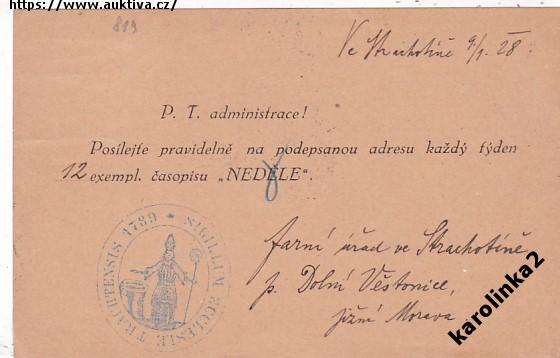 https://www.auktiva.cz/
819
Ve Strachotíně 9/1. 28.
P. T. administrace!
Posílejte pravidelně na podepsanou adresu každý týden
12 exempl. časopisu „NEDĚLE“.
SIGILLUM ECCLESIE TRACHTENSIS 1789
farní úřad ve Strachotíně
p. Dolní Věstonice,
jižní Morava
karolinka2